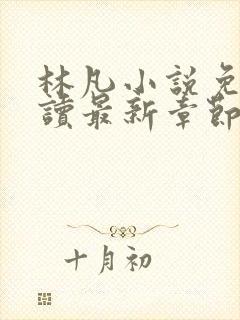 林凡小說免
讀最新章節
十月初